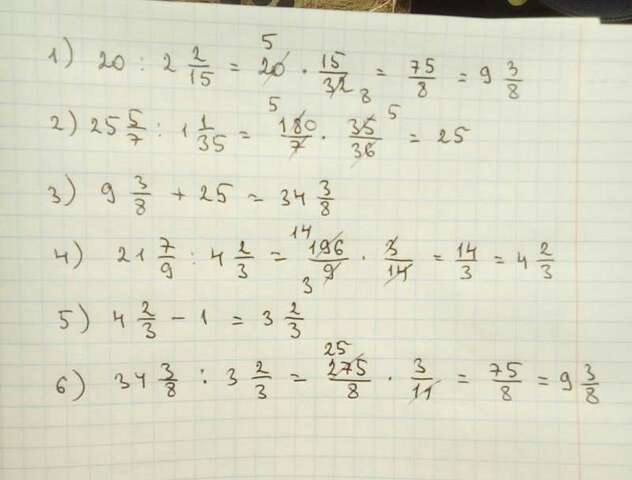 1) 20 : 2 2/15 = 20 5 · 15/32 8 = 75/8 = 9 3/8
2) 25 5/7 : 1 1/35 = 5 180/7 · 35/36 5 = 25
3) 9 3/8 + 25 = 34 3/8
4) 21 7/9 : 4 2/3 = 14 196/9 3 · 3/14 = 14/3 = 4 2/3
5) 4 2/3 - 1 = 3 2/3
6) 34 3/8 : 3 2/3 = 25 275/8 · 3/11 = 75/8 = 9 3/8